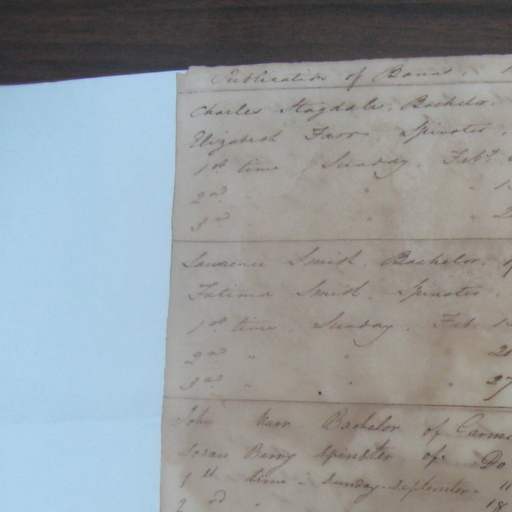 Publication of Banns.
Charles Stogdale, Bachelor,
Elizabeth Farr Spinster,
1st time Sunday Feby
2nd " "
3rd " "
Lawrence Smith Bachelor,
Fatima Smith Spinster
1st time Sunday Feb
2nd " " "
3rd " " " 27
John Bachelor of
Berry Spinster of Do
1st time - Sunday - September - 11
2nd " 18